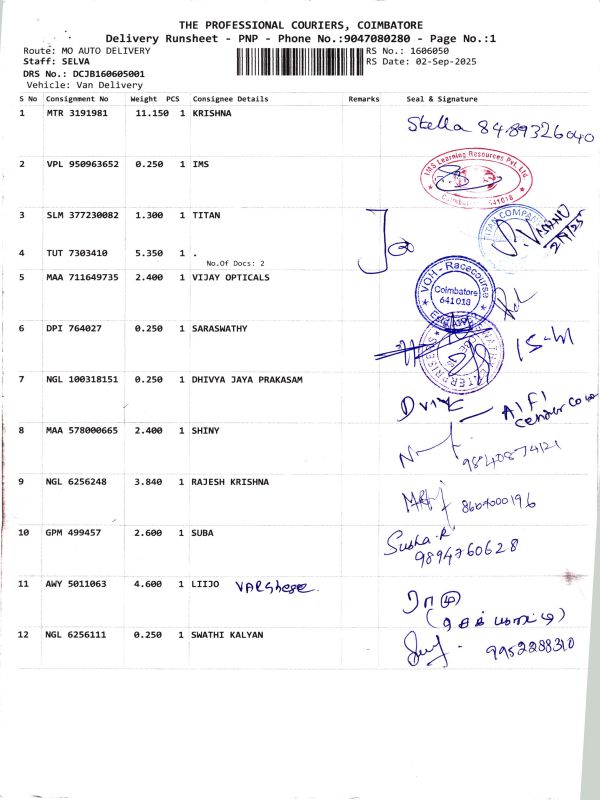 THE PROFESSIONAL COURIERS, COIMBATORE
Delivery Runsheet - PNP - Phone No.:9047080280 - Page No.:1
Route: MO AUTO DELIVERY RS No.: 1606050
Staff: SELVA RS Date: 02-Sep-2025
DRS No.: DCJB160605001
Vehicle: Van Delivery
S No Consignment No Weight PCS Consignee Details Remarks Seal & Signature
1 MTR 3191981 11.150 1 KRISHNA
Stella 8489326040
2 VPL 950963652 0.250 1 IMS
IMS Learning Resources Pvt. Ltd.
Coimbatore 641018
3 SLM 377230082 1.300 1 TITAN
TITAN COMPANY
2/9/25
4 TUT 7303410 5.350 1 .
No.Of Docs: 2
5 MAA 711649735 2.400 1 VIJAY OPTICALS
VOH - Racecourse
Coimbatore
641018
6 DPI 764027 0.250 1 SARASWATHY
7 NGL 100318151 0.250 1 DHIVYA JAYA PRAKASAM
8 MAA 578000665 2.400 1 SHINY
9840874121
9 NGL 6256248 3.840 1 RAJESH KRISHNA
8667000196
10 GPM 499457 2.600 1 SUBA
Subha.R
9894760628
11 AWY 5011063 4.600 1 LIIJO VARGhese
12 NGL 6256111 0.250 1 SWATHI KALYAN
9952288310